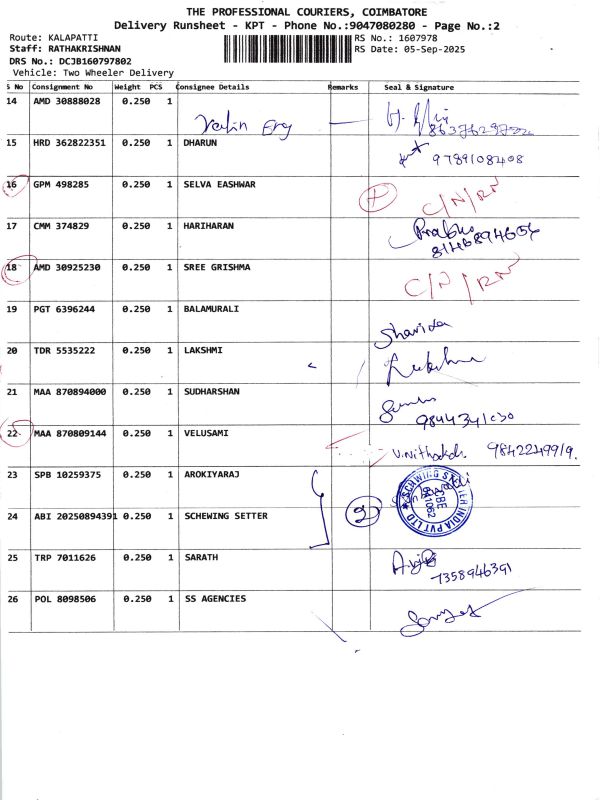 THE PROFESSIONAL COURIERS, COIMBATORE
Delivery Runsheet - KPT - Phone No.:9047080280 - Page No.:2
Route: KALAPATTI
RS No.: 1607978
Staff: RATHAKRISHNAN
RS Date: 05-Sep-2025
DRS No.: DCJB160797802
Vehicle: Two Wheeler Delivery
S No Consignment No Weight PCS Consignee Details Remarks Seal & Signature
14 AMD 30888028 0.250 1
15 HRD 362822351 0.250 1 DHARUN 9789108408
16 GPM 498285 0.250 1 SELVA EASHWAR C/N/RN
17 CMM 374829 0.250 1 HARIHARAN Prabhu
8148894656
18 AMD 30925230 0.250 1 SREE GRISHMA C/N/RN
19 PGT 6396244 0.250 1 BALAMURALI
20 TDR 5535222 0.250 1 LAKSHMI
21 MAA 870894000 0.250 1 SUDHARSHAN
9844341030
22 MAA 870809144 0.250 1 VELUSAMI 9842249919.
23 SPB 10259375 0.250 1 AROKIYARAJ
24 ABI 20250894391 0.250 1 SCHEWING SETTER 2
25 TRP 7011626 0.250 1 SARATH
7358946391
26 POL 8098506 0.250 1 SS AGENCIES